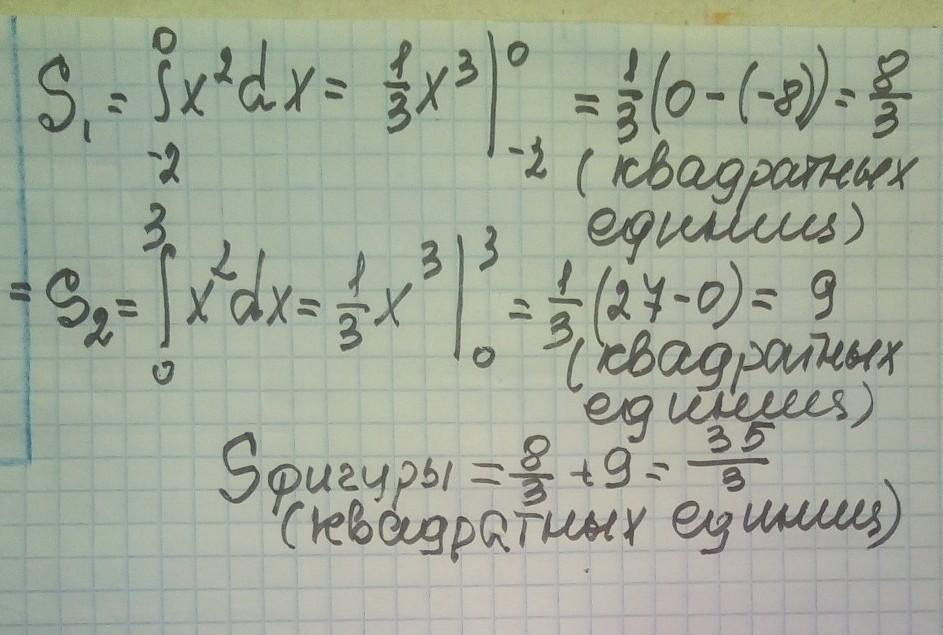 S₁ = ∫₋₂⁰ x² dx = 1/3 x³ |₋₂⁰ = 1/3 (0 - (-8)) = 8/3
(квадратных
единиц)
= S₂ = ∫₀³ x² dx = 1/3 x³ |₀³ = 1/3 (27 - 0) = 9
(квадратных
единиц)
Sфигуры = 8/3 + 9 = 35/3
(квадратных единиц)